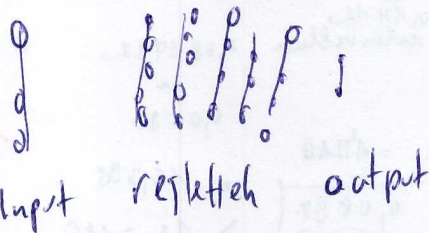 Input rejtett output